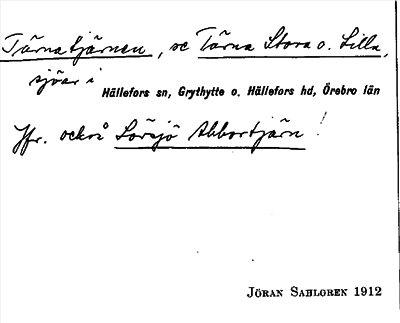 Tärnatjärnen, se Tärna Stora o. Lilla,
sjöar i
Hällefors sn, Grythytte o. Hällefors hd, Örebro län
Jfr. också Lövsjö Abbortjärn!
JÖRAN SAHLGREN 1912